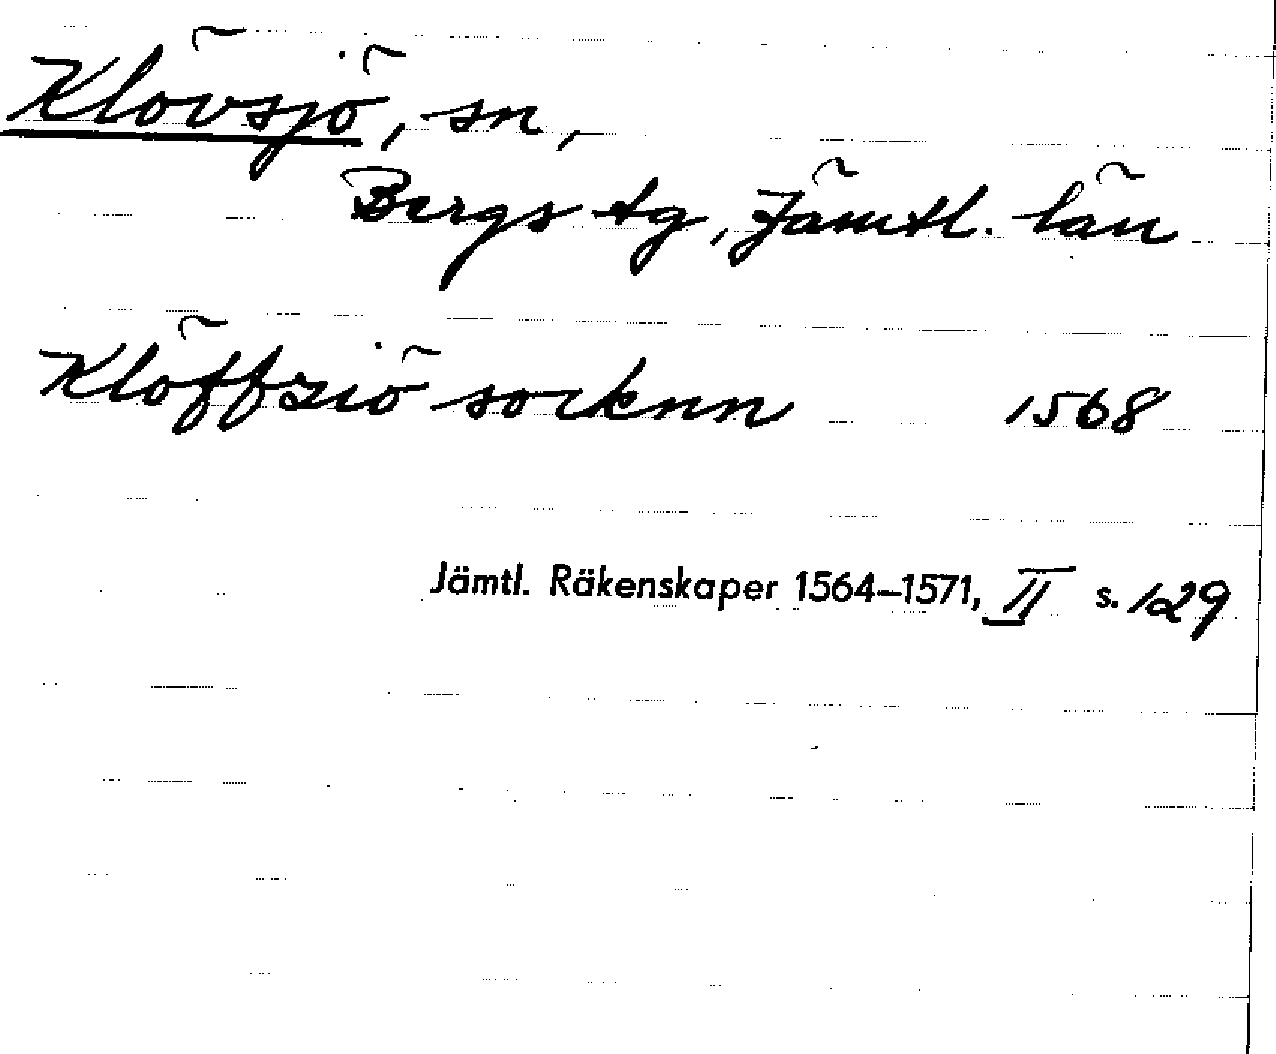 Klövsjö, sn,
Bergs tg, Jämtl. län
Klöffziö socknn 1568
Jämtl. Räkenskaper 1564–1571, II s. 129